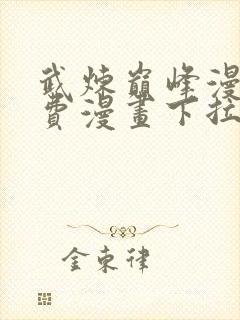 武煉巔峰漫
費漫畫下拉
金東律